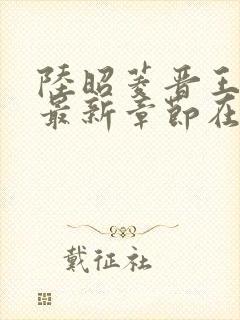 陸昭菱晋王
最新章節在
戴征社